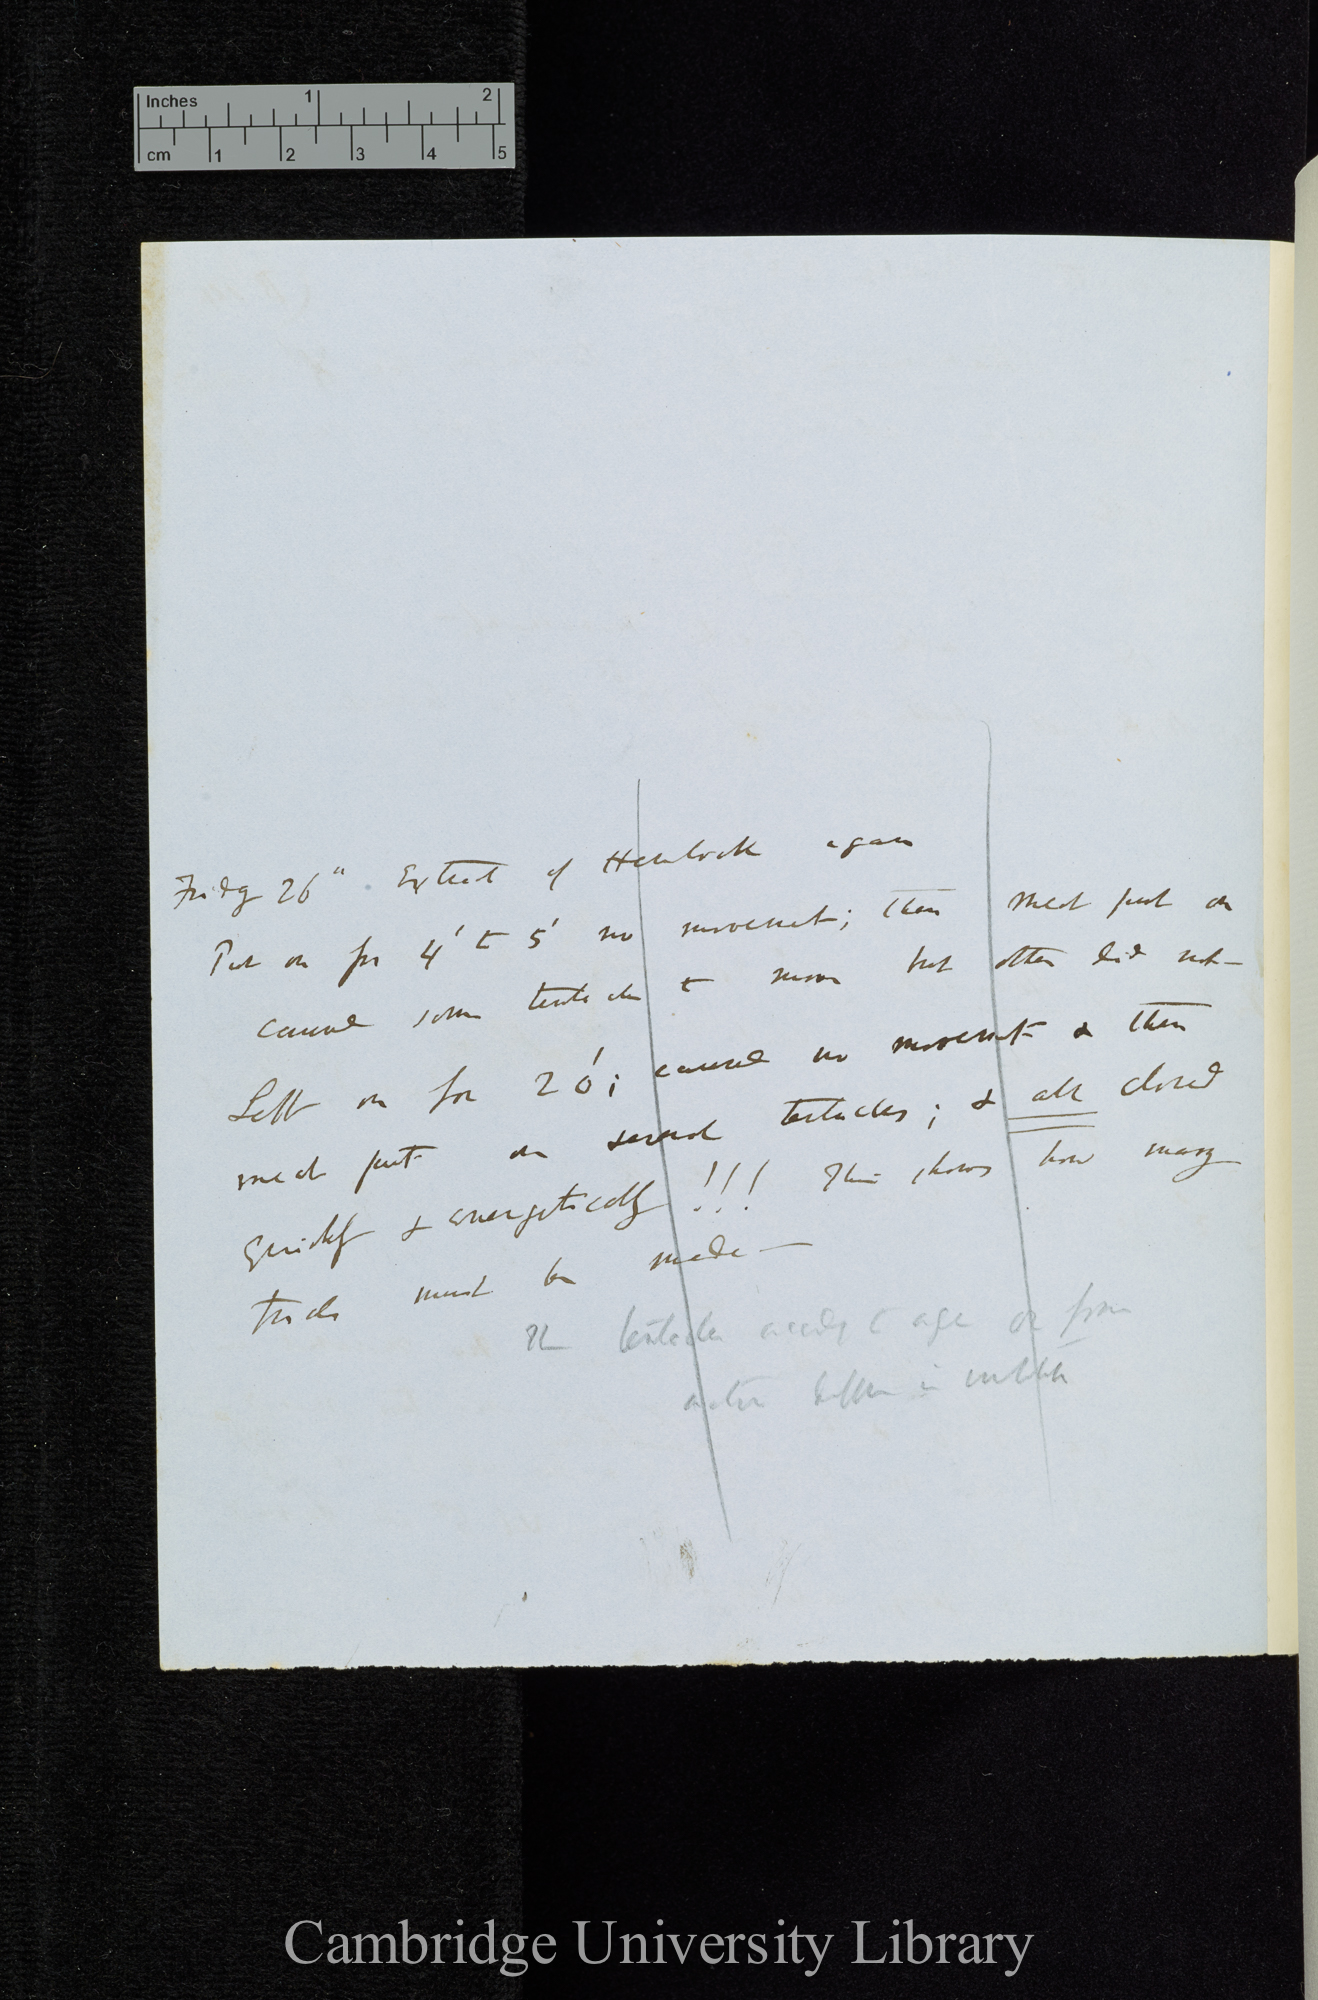 Inches 1 2
cm 1 2 3 4 5
Friday 26" Extract of Hemlock again
Put on for 4' to 5' no movement; then meat put on
caused some tentacles to move but others did not—
Left on for 20'; caused no movement & then
meat put on several tentacles; & all closed
quickly & energetically!!! This shows how many
trials must be made—
The tentacles accordg to age or from
action differ in
Cambridge University Library